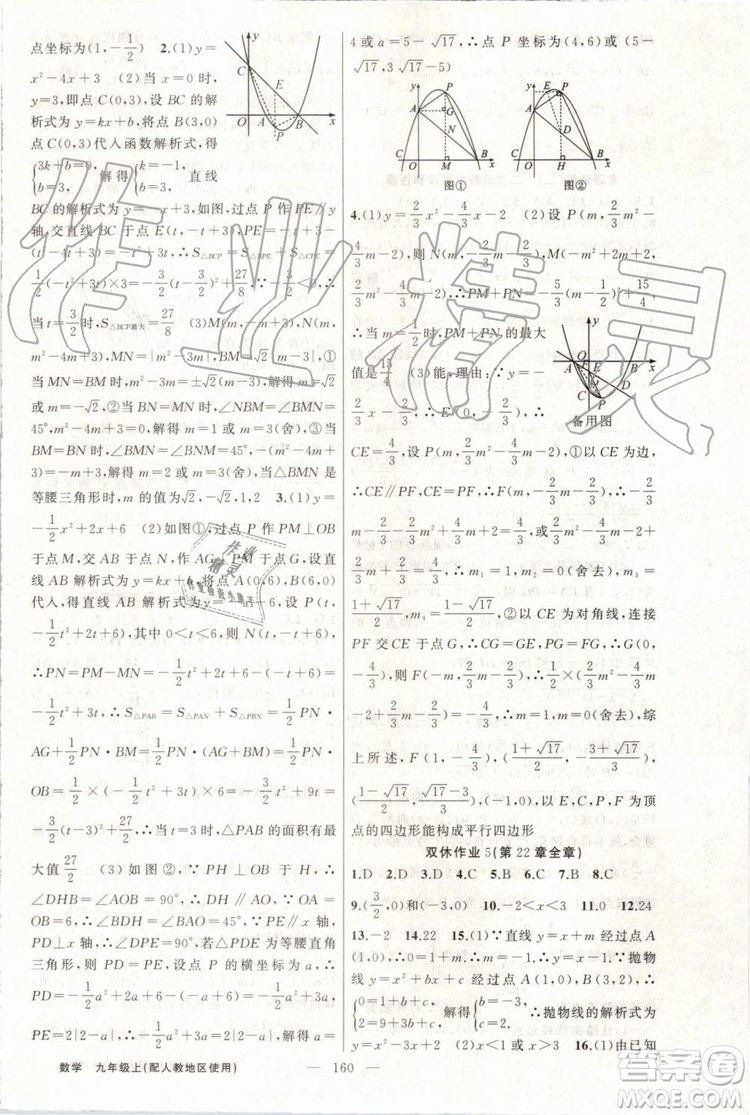 点坐标为(1,-1/2) 2.(1)y=
x²-4x+3 (2)当 x=0 时,
y=3,即点 C(0,3),设 BC 的解
析式为 y=kx+b,将点 B(3,0)
点 C(0,3)代入函数解析式,得
{3k+b=0, b=3, 解得{ 直线
BC 的解析式为 y=-x+3,如图,过点 P 作 PE∥y
轴,交直线 BC 于点 E(t,-t+3),PE=-t+3-
(t²-4t+3)=-t²+3t,∴S△BCP=S△BPE+S△CPE=
1/2(-t²+3t)×3=-3/2(t-3/2)²+27/8,∵-3/2<0,∴
当 t=3/2时,S△BCP最大=27/8 (3)M(m,-m+3),N(m,
m²-4m+3),MN=|m²-3m|,BM=√2|m-3|,①
当 MN=BM 时,m²-3m=±√2(m-3),解得 m=√2
或 m=-√2,②当 BN=MN 时,∠NBM=∠BMN=
45°,m²-4m+3=0,解得 m=1 或 m=3(舍),③当
BM=BN 时,∠BMN=∠BNM=45°,-(m²-4m+
3)=-m+3,解得 m=2 或 m=3(舍),当△BMN 是
等腰三角形时,m 的值为√2,-√2,1,2 3.(1)y=
-1/2x²+2x+6 (2)如图①,过点 P 作 PM⊥OB
于点 M,交 AB 于点 N,作 AG⊥PM 于点 G,设直线
AB 解析式为 y=kx+b,将点 A(0,6)、B(6,0)
代入,得直线 AB 解析式为 y=-x+6,设 P(t,
-1/2t²+2t+6),其中 0<t<6,则 N(t,-t+6),
∴PN=PM-MN=-1/2t²+2t+6-(-t+6)=
-1/2t²+3t,∴S△PAB=S△PAN+S△PBN=1/2PN·
AG+1/2PN·BM=1/2PN·(AG+BM)=1/2PN·
OB=1/2×(-1/2t²+3t)×6=-3/2t²+9t=
-3/2(t-3)²+27/2,∴当 t=3 时,△PAB 的面积有最
大值27/2 (3)如图②,∵PH⊥OB 于点 H,
∴∠DHB=∠AOB=90°,∴DH∥AO,∵OA=
OB=6,∴∠BDH=∠BAO=45°,∵PE∥x 轴、
PD⊥x 轴,∴∠DPE=90°,若△PDE 为等腰直角三
角形,则 PD=PE,设点 P 的横坐标为 a,∴
PD=-1/2a²+2a+6-(-a+6)=-1/2a²+3a,
PE=2|2-a|,∴-1/2a²+3a=2|2-a|,解得 a=
4 或 a=5-√17,∴点 P 坐标为(4,6)或(5-
√17,3√17-5)
图① 图②
4.(1)y=2/3x²-4/3x-2 (2)设 P(m,2/3m²-
4/3m-2),则 N(1/3m²-2/3m,0),M(-m²+2m+2,
2/3m²-4/3m-2),∴PM+PN=-5/3(m-1/2)²+15/4
∴当 m=1/2时,PM+PN 的最大
值是15/4 (3)能,理由:∵y=-
2/3x-2/3,∴E(0,-2/3),∴
备用图
CE=4/3,设 P(m,2/3m²-4/3m-2),①以 CE 为边,
∴CE∥PF,CE=PF,∴F(m,-2/3m-2/3),∴-2/3
m-2/3-2/3m²+4/3m+2=4/3或2/3m²-4/3m-2+
2/3m+2/3=4/3,∴m₁=1,m₂=0(舍去),m₃=
(1+√17)/2,m₄=(1-√17)/2,②以 CE 为对角线,连接
PF 交 CE 于点 G,∴CG=GE,PG=FG,∴G(0,
-4/3),则 F(-m,2/3m-2/3),∴1/2×(2/3m²-4/3m
-2+2/3m-2/3)=-4/3,∴m=1,m=0(舍去),综
上所述,F(1,-4/3),(-1,0),((1+√17)/2,-(3+√17)/3),
((1-√17)/2,(√17-3)/3)时,以 C,E,P,F 为顶
点的四边形能构成平行四边形
双休作业 5(第 22 章全章)
1.D 2.D 3.C 4.D 5.D 6.D 7.B 8.C
9.(3/2,0)和(-3/2,0) 10.-2<x<3 11.0 12.24
13.-2 14.22 15.(1)∵直线 y=x+m 经过点 A
(1,0),∴0=1+m,∴m=-1,∴y=x-1,∵抛物
线 y=x²+bx+c 经过点 A(1,0)、B(3,2),∴
{0=1+b+c, 2=9+3b+c, 解得{b=-3, c=2, ∴抛物线的解析式为
y=x²-3x+2 (2)x<1 或 x>3 16.(1)由已知
数学 九年级上(配人教地区使用) — 160 —
作业精灵
答案圈